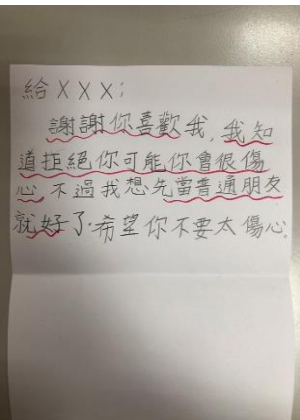 給XXX:
謝謝你喜歡我,我知
道拒絕你可能你會很傷
心,不過我想先當普通朋友
就好了.希望你不要太傷心。